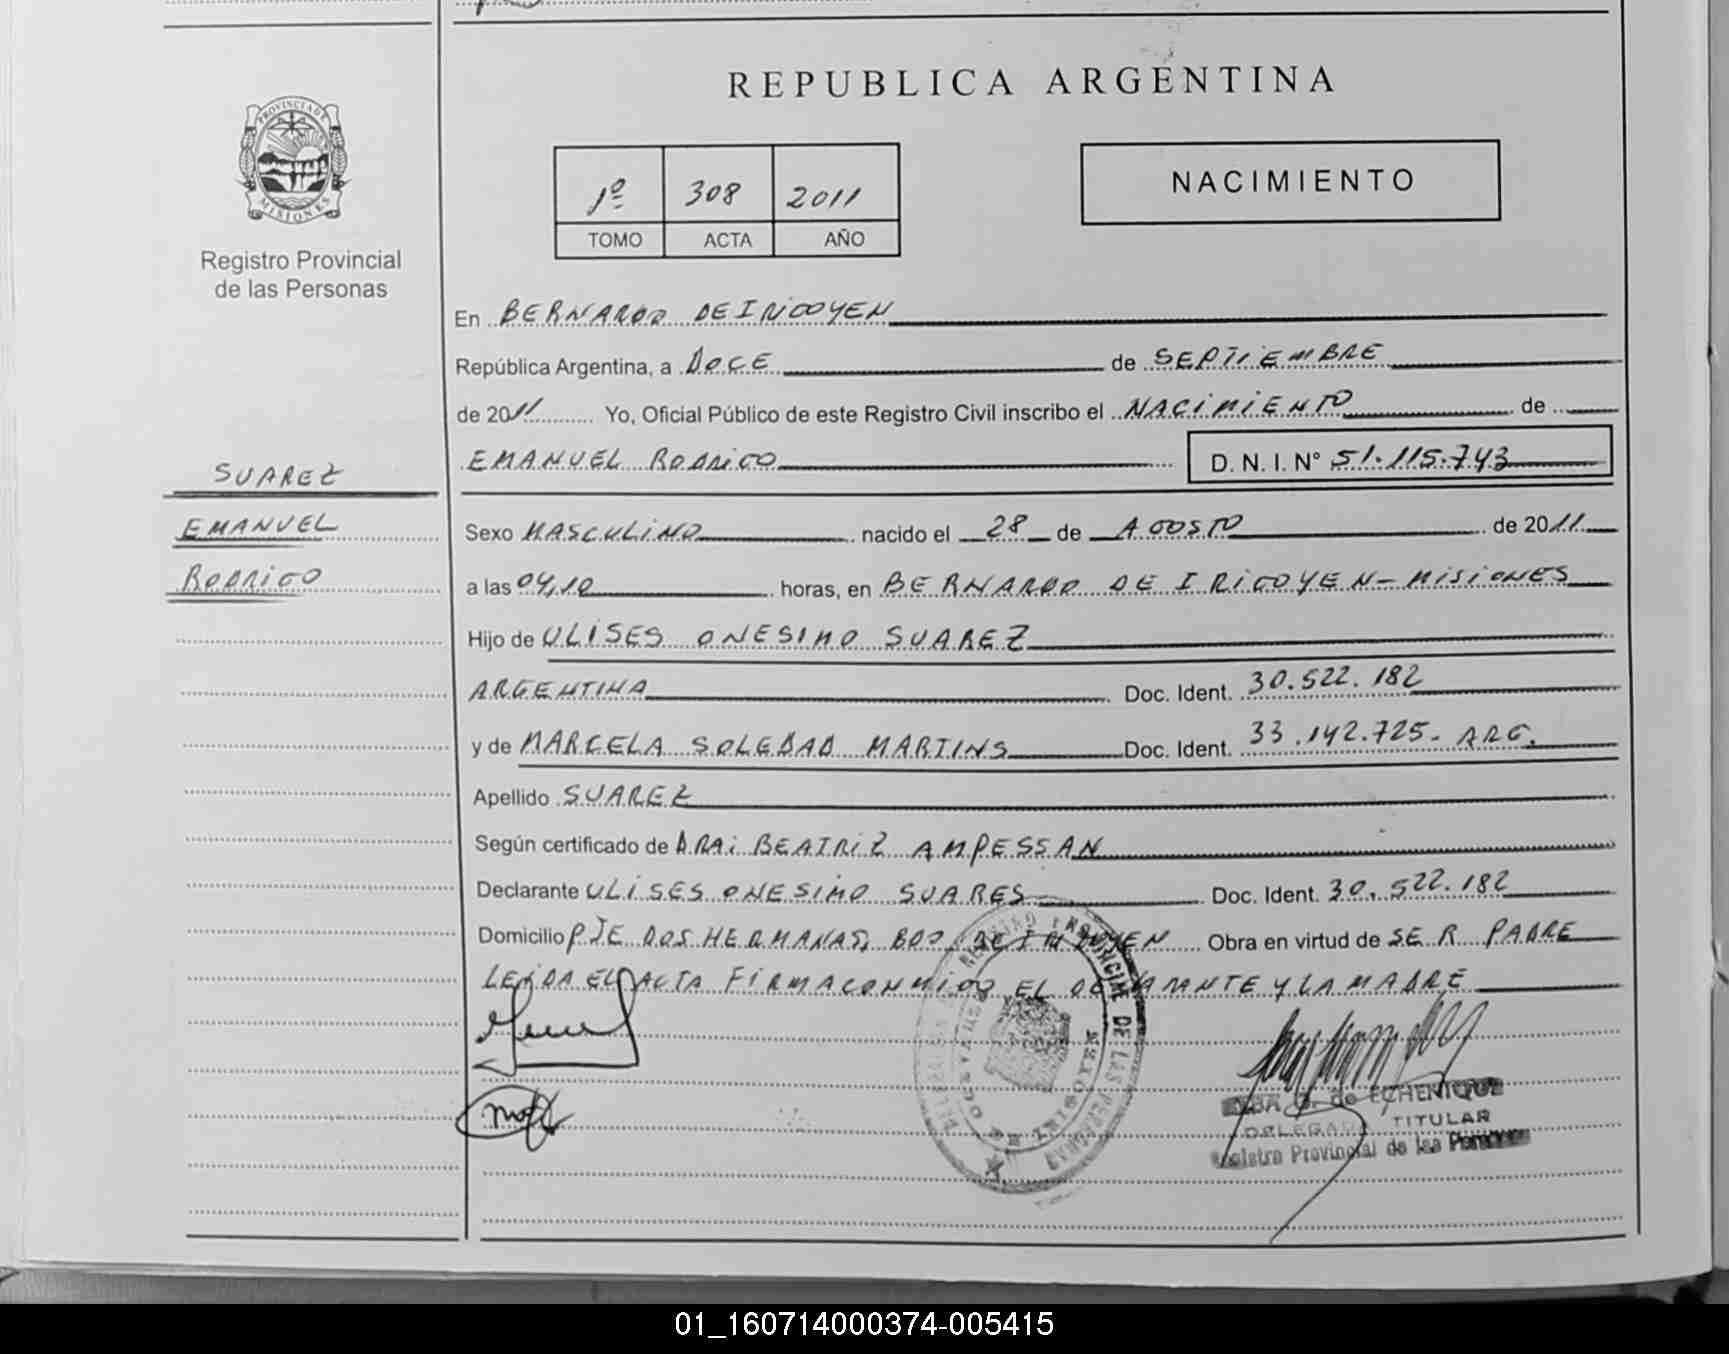 REPUBLICA ARGENTINA
PROVINCIA DE
MISIONES
Registro Provincial
de las Personas
1º 308 2011
TOMO ACTA AÑO
NACIMIENTO
En BERNARDO DE IRIGOYEN
República Argentina, a DOCE de SEPTIEMBRE
de 2011 Yo, Oficial Público de este Registro Civil inscribo el NACIMIENTO de
EMANUEL RODRIGO D. N. I. N° 51.115.743
SUAREZ
EMANUEL
RODRIGO
Sexo MASCULINO nacido el 28 de AGOSTO de 2011
a las 04,10 horas, en BERNARDO DE IRIGOYEN - MISIONES
Hijo de ULISES ONESIMO SUAREZ
ARGENTINA Doc. Ident. 30.522.182
y de MARCELA SOLEDAD MARTINS Doc. Ident. 33.142.725- ARG.
Apellido SUAREZ
Según certificado de DRA: BEATRIZ AMPESSAN
Declarante ULISES ONESIMO SUARES Doc. Ident. 30.522.182
Domicilio PJE DOS HERMANAS, BDO. DE IRIGOYEN Obra en virtud de SER PADRE
LEIDA EL ACTA FIRMA CONMIGO EL DECLARANTE Y LA MADRE
DE LAS
DE ECHENIQUE
DELEGADA TITULAR
Registro Provincial de las Personas
01_160714000374-005415